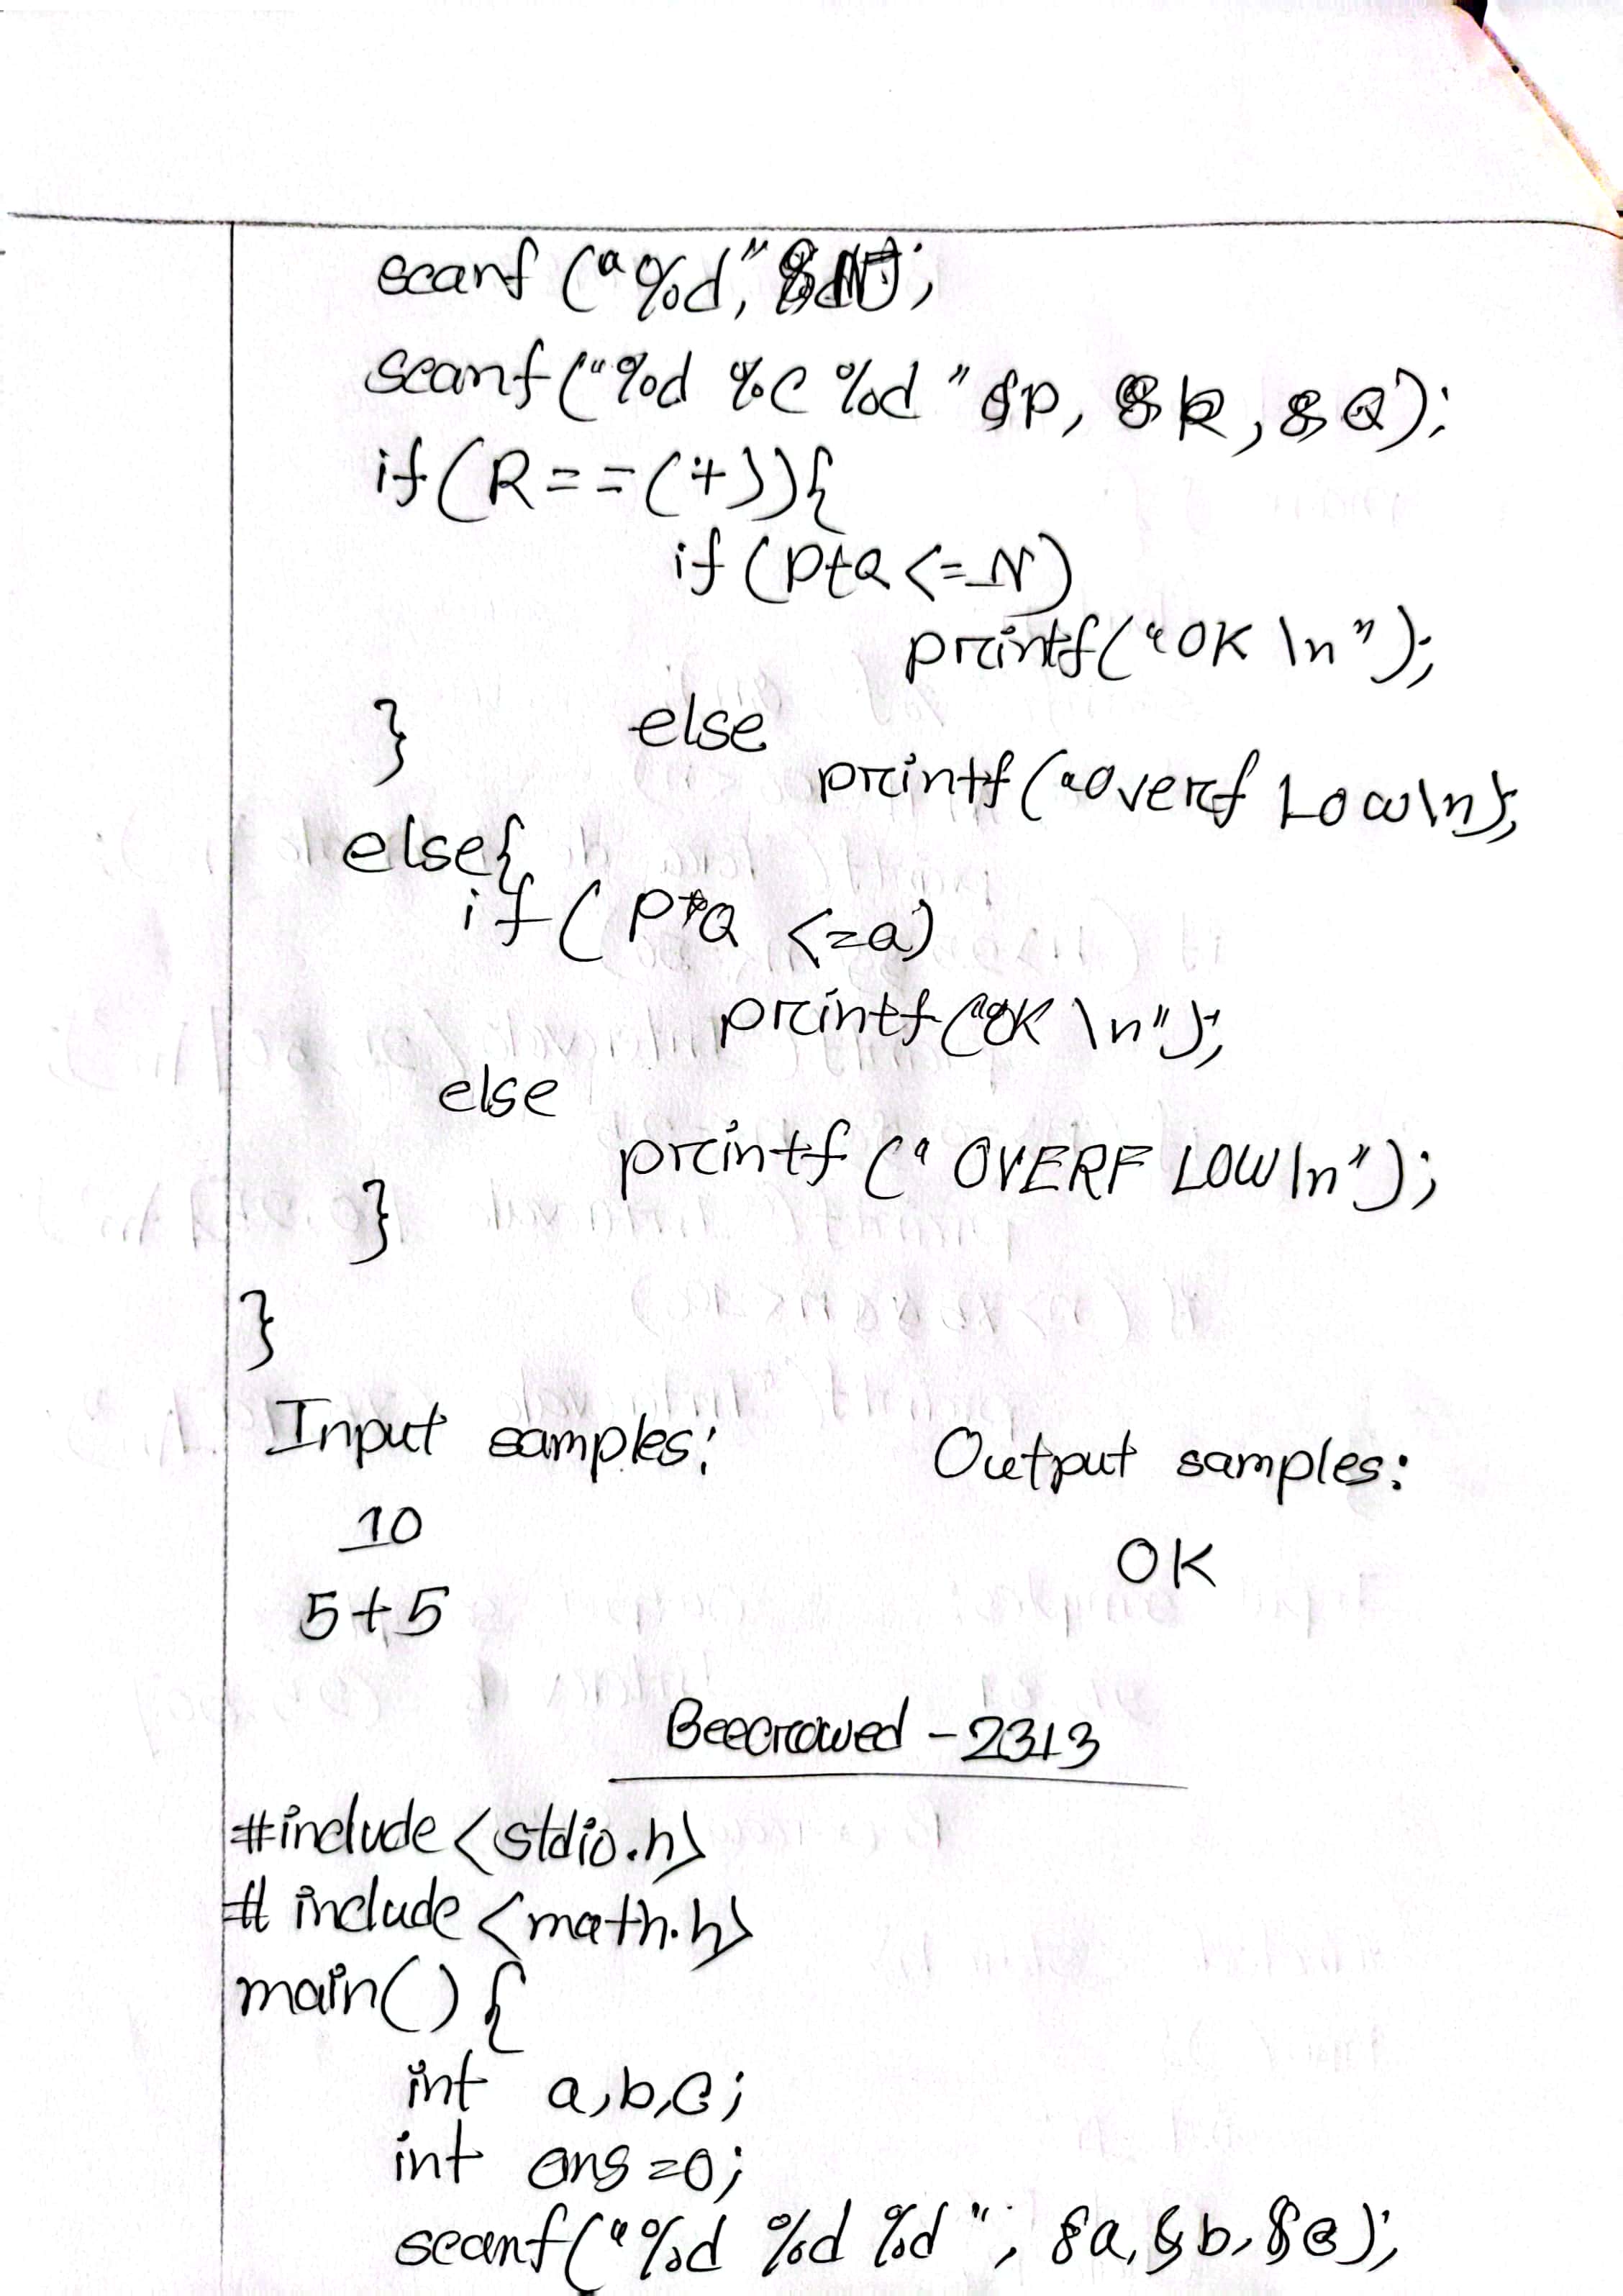 scanf ("%d," &N);
scanf("%d %c %d " &P, &R, &Q);
if(R==('+')){
if (P+Q <= N)
printf("OK \n");
} else
printf ("Overf Low\n);
else{
if ( P*Q <=a)
printf("OK \n");
else
printf (" OVERF LOW\n");
}
}
Input samples: Output samples:
10
OK
5+5
Beecrowed - 2313
#include <stdio.h>
# include <math.h>
main() {
int a,b,c;
int ans =0;
scanf("%d %d %d ", &a, &b, &c);